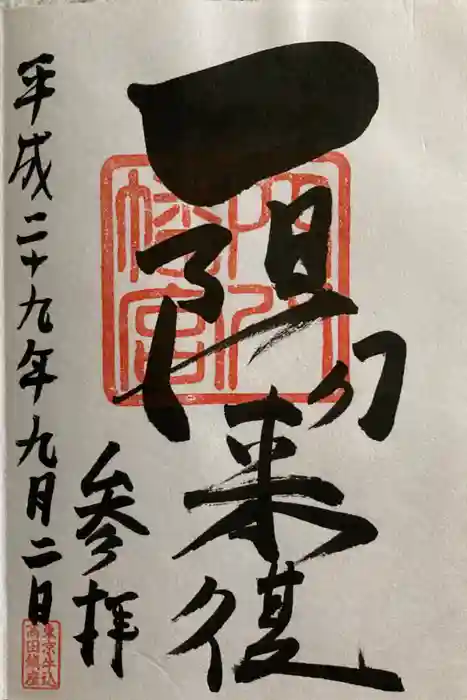 一陽来復
参拝
平成二十九年九月二日
穴八幡宮
東京牛込
高田鎮座